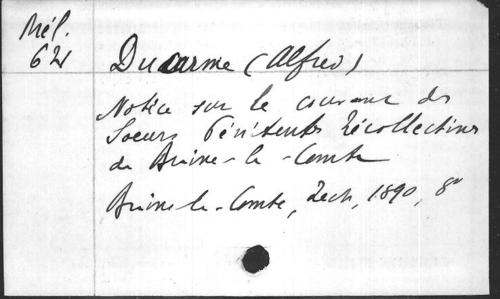 Mél.
621
Ducarme (Alfred)
Notice sur le couvent des
Soeurs Pénitentes Récollectines
de Braine-le-Comte
Braine-le-Comte, Zech, 1890, 8°